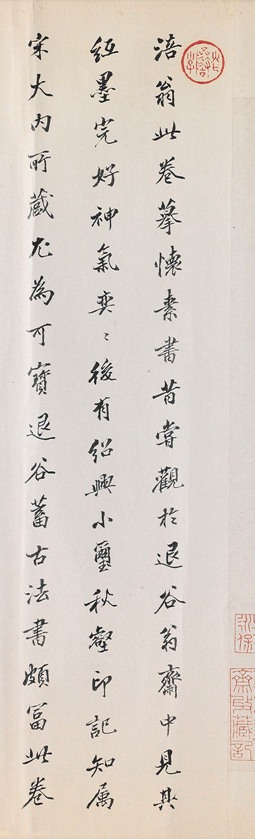 涪翁此卷摹懷素書昔嘗觀於退谷翁齋中見其
紙墨完好神氣奕〻後有紹興小璽秋壑印記知属
宋大内所蔵尤為可寶退谷蓄古法書頗富此卷